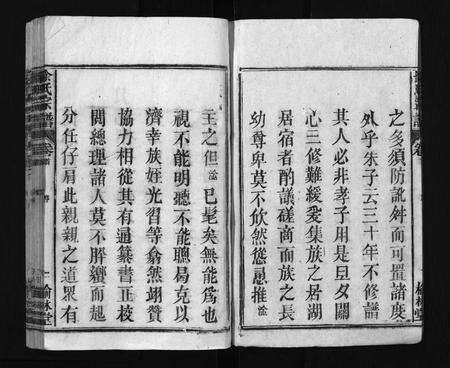 之多須防訛舛而可置諸度
外乎朱子云三十年不修譜
其人必非孝子用是旦夕關
心三修難緩爰集族之居湖
居宿者酌議磋商而族之長
幼尊卑莫不欣然慫恿推
主之但 已髦矣無能為也
視不能明聽不能聰曷克以
濟幸族姪光習等翕然翊贊
協力相從其有通纂書正校
閱總理諸人莫不胼蠁而起
分任仔肩此親親之道眾有
徐氏宗譜 卷
一 倫林堂